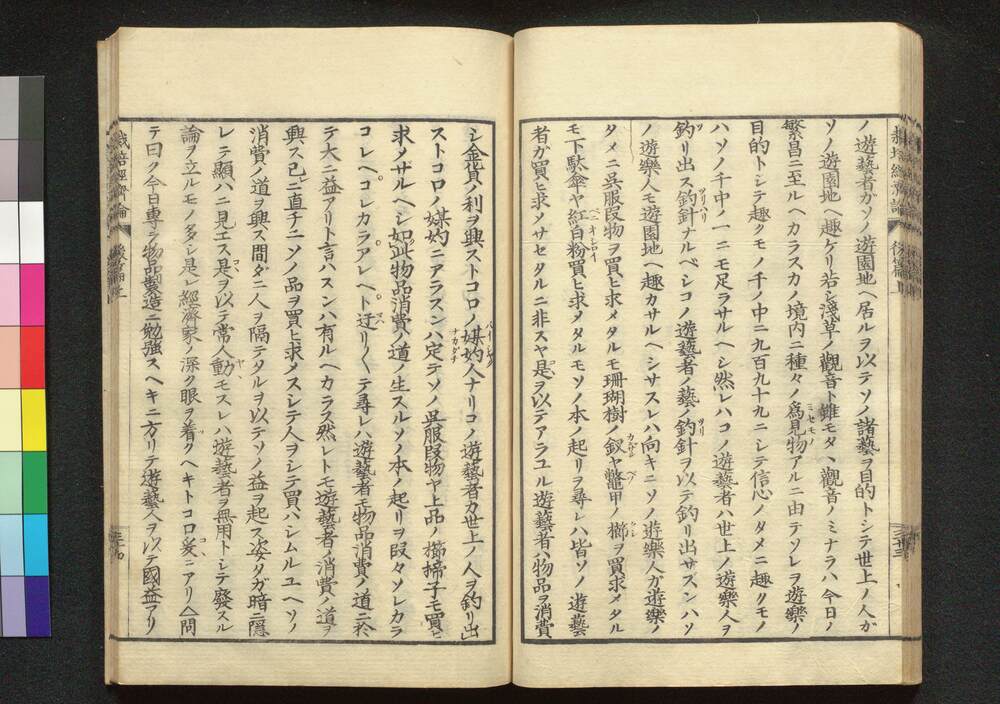 ノ遊藝者カソノ遊園地ヘ居ルヲ以テソノ諸藝ヲ目的トシテ世上ノ人カ
ソノ遊園地ヘ趣ケリ若シ淺草ノ觀音ト雖モタヽ觀音ノミナラハ今日ノ
繁昌ニ至ルヘカラスカノ境内ニ種々ノ爲見物アルニ由テソレヲ遊樂ノ
目的トシテ趣クモノ千ノ中ニ九百九十九ニシテ信心ノタメニ趣クモノ
ハソノ千中ノ一ニモ足ラサルヘシ然レハコノ遊藝者ハ世上ノ遊樂人ヲ
釣リ出ス釣針ナルベシコノ遊藝者ノ藝ノ釣針ヲ以テ釣リ出サズンハソ
ノ遊樂人モ遊園地ヘ趣カサルヘシサスレハ向キニソノ遊樂人カ遊樂ノ
タメニ呉服段物ヲ買ヒ求メタルモ珊瑚樹ノ釵ヤ鼈甲ノ櫛ヲ買求メタル
モ下駄傘ヤ紅白粉買ヒ求メタルモソノ本ノ起リヲ尋レハ皆ソノ遊藝
者カ買ヒ求ソサセタルニ非スヤ是ヲ以テアラユル遊藝者ハ物品ヲ消費
シ金貨ノ利ヲ興ストコロノ媒妁人ナリコノ遊藝者カ世上ノ人ヲ釣リ出
ストコロノ媒妁ニアラスンハ定テソノ呉服段物ヤ上品ノ櫛掃子モ買ヒ
求メサルヘシ如此物品消費ノ道ノ生スルソノ本ノ起リヲ段々ソレカラ
コレヘコレカラアレヘト迂リ〱テ尋レハ遊藝者モ物品消費ノ道ニ於
テ大ニ益アリト言ハスンハ有ルヘカラス然レトモ遊藝者ノ消費ノ道ヲ
興ス已ニ直チニソノ品ヲ買ヒ求メスシテ人ヲシテ買ハシムルユヘソノ
消費ノ道ヲ興ス間ダニ人ヲ隔テタルヲ以テソノ益ヲ起ス姿タガ暗ニ隱
レテ顯ハニ見エス是ヲ以テ常人動モスレハ遊藝者ヲ無用トシテ廢スル
論ヲ立ルモノ多シ是レ經濟家ノ深ク眼ヲ着クヘキトコロ爰ニアリ△問
テ曰ク今日專ラ物品製造ニ勉強スヘキニ方リテ遊藝人ヲ以テ國益アリ
栽培經濟論
後篇上